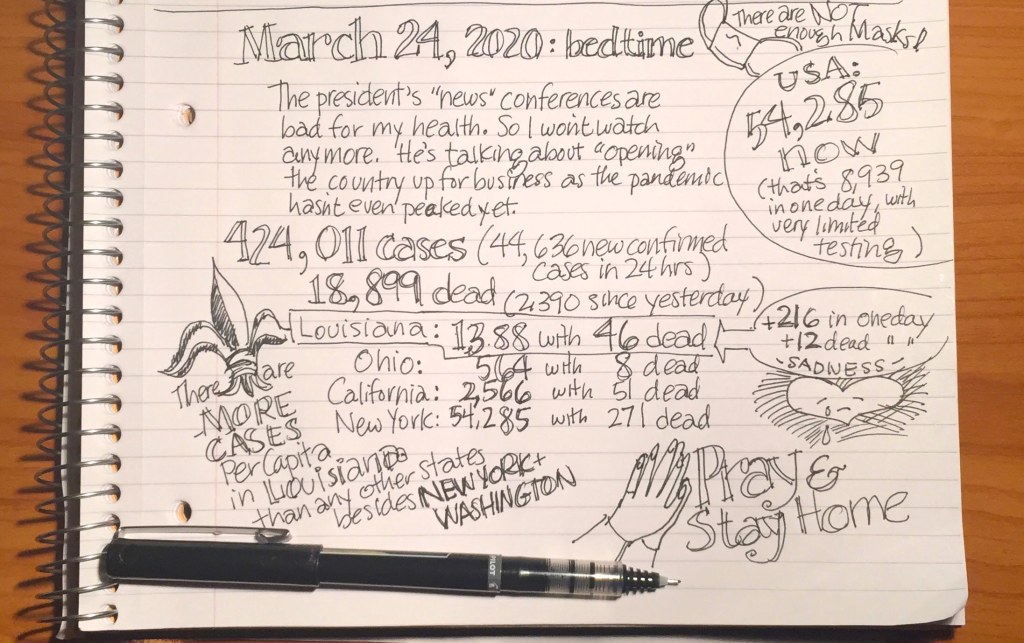 March 24, 2020: bedtime
There are NOT
enough Masks!
The president's "news" conferences are
bad for my health. So I won't watch
anymore. He's talking about "opening"
the country up for business as the pandemic
hasn't even peaked yet.
USA:
54,285
now
(that's 8,939
in one day, with
very limited
testing)
424,011 cases (44,636 new confirmed
cases in 24 hrs)
18,899 dead (2,390 since yesterday)
Louisiana: 1388 with 46 dead
Ohio: 564 with 8 dead
California: 2,566 with 51 dead
New York: 54,285 with 271 dead
+216 in one day
+12 dead " "
-SADNESS-
There are
MORE
CASES
Per Capita
in Louisiana
than any other states
besides NEW YORK +
WASHINGTON
Pray &
Stay Home
PILOT